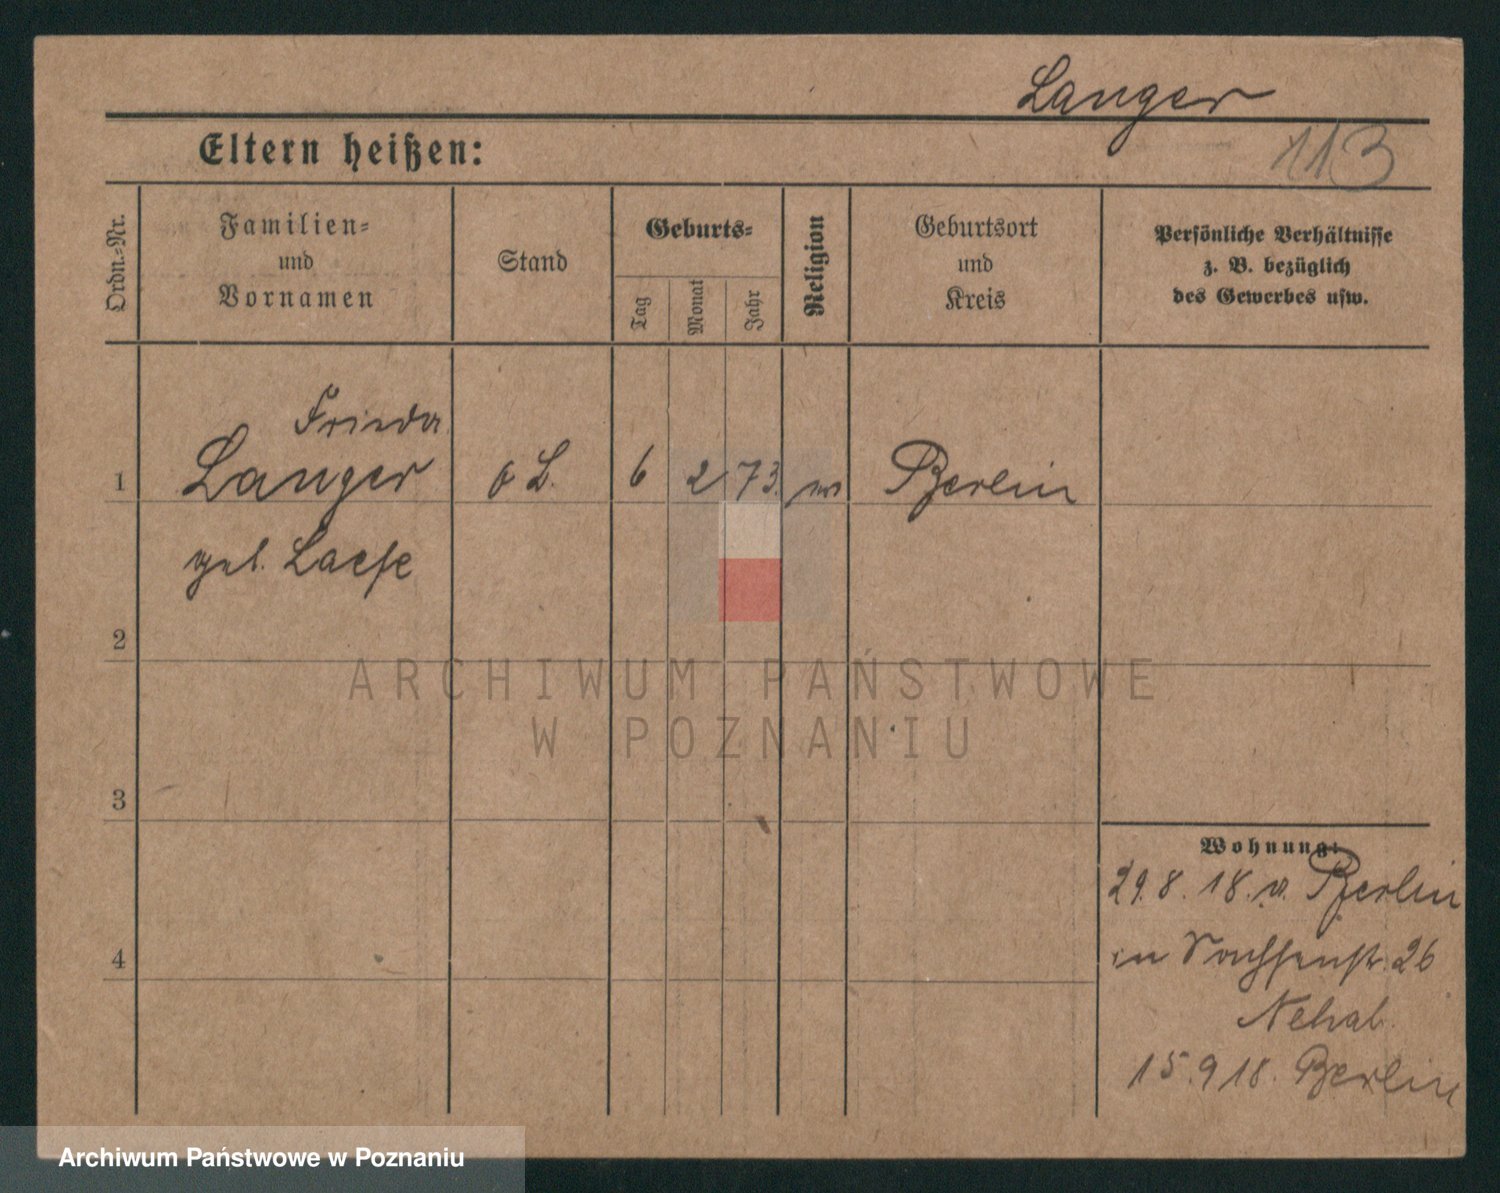 Langer
113
Eltern heißen:
Ordn.-Nr.
Familien-
und
Vornamen
Stand
Geburts-
Tag
Monat
Jahr
Religion
Geburtsort
und
Kreis
Persönliche Verhältnisse
z. B. bezüglich
des Gewerbes usw.
Frieda
1 Langer 6 2 73 Berlin
geb.
2
ARCHIWUM PAŃSTWOWE
W POZNANIU
3
Wohnung:
29.8.18. v. Berlin
4
in Sachsenstr. 26
Nehab
15.9.18. Berlin
Archiwum Państwowe w Poznaniu